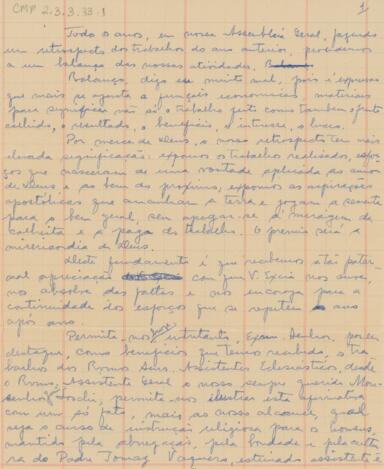 CMP 2.3.3.33.1
1
Todo o ano, em nossa Assembléia Geral, fazendo
um retrospecto dos trabalhos do ano anterior, procedemos
a um balanço das nossas atividades.
Balanço, digo eu muito mal, pois é expressão
que mais se ajusta a funções economicas, materiais
para significar não só o trabalho feito como tambem o fruto
colhido, o resultado, o beneficio, o interesse, o lucro.
Por mercê de Deus, o nosso retrospecto tem mais
elevada significação: expomos o trabalho realisado, esfor-
ços que nasceram de uma vontade aplicada ao amor
de Deus, e ao bem do proximo, expomos as aspirações
apostólicas que arranham a terra e jogam a semente
para o bem geral, sem apegar-se á miragem da
colheita e á paga do trabalho. O premio será a
misericordia de Deus.
Neste fundamento é que recebemos a tão pater-
nal apreciação com que V. Excia nos ouve,
nos absolve das faltas e nos encoraja para a
continuidade dos esforços que se repetem ano
após ano.
Permita-nos, entretanto, Exmo. Senhor, por em
destaque, como beneficios que temos recebido, o tra-
balho dos Rvmos Snrs. Assistentes Eclesiasticos, desde
o Rvmo. Assistente Geral o nosso sempre querido Mon-
senhor; permita-nos ilustrar esta afirmativa
com um só fato, mais ao nosso alcance, qual
seja o curso de instrução religiosa para o
mantido pela abnegação, pela bondade e pela cultu-
ra do Padre Tomaz Vaquero, estimado assistente